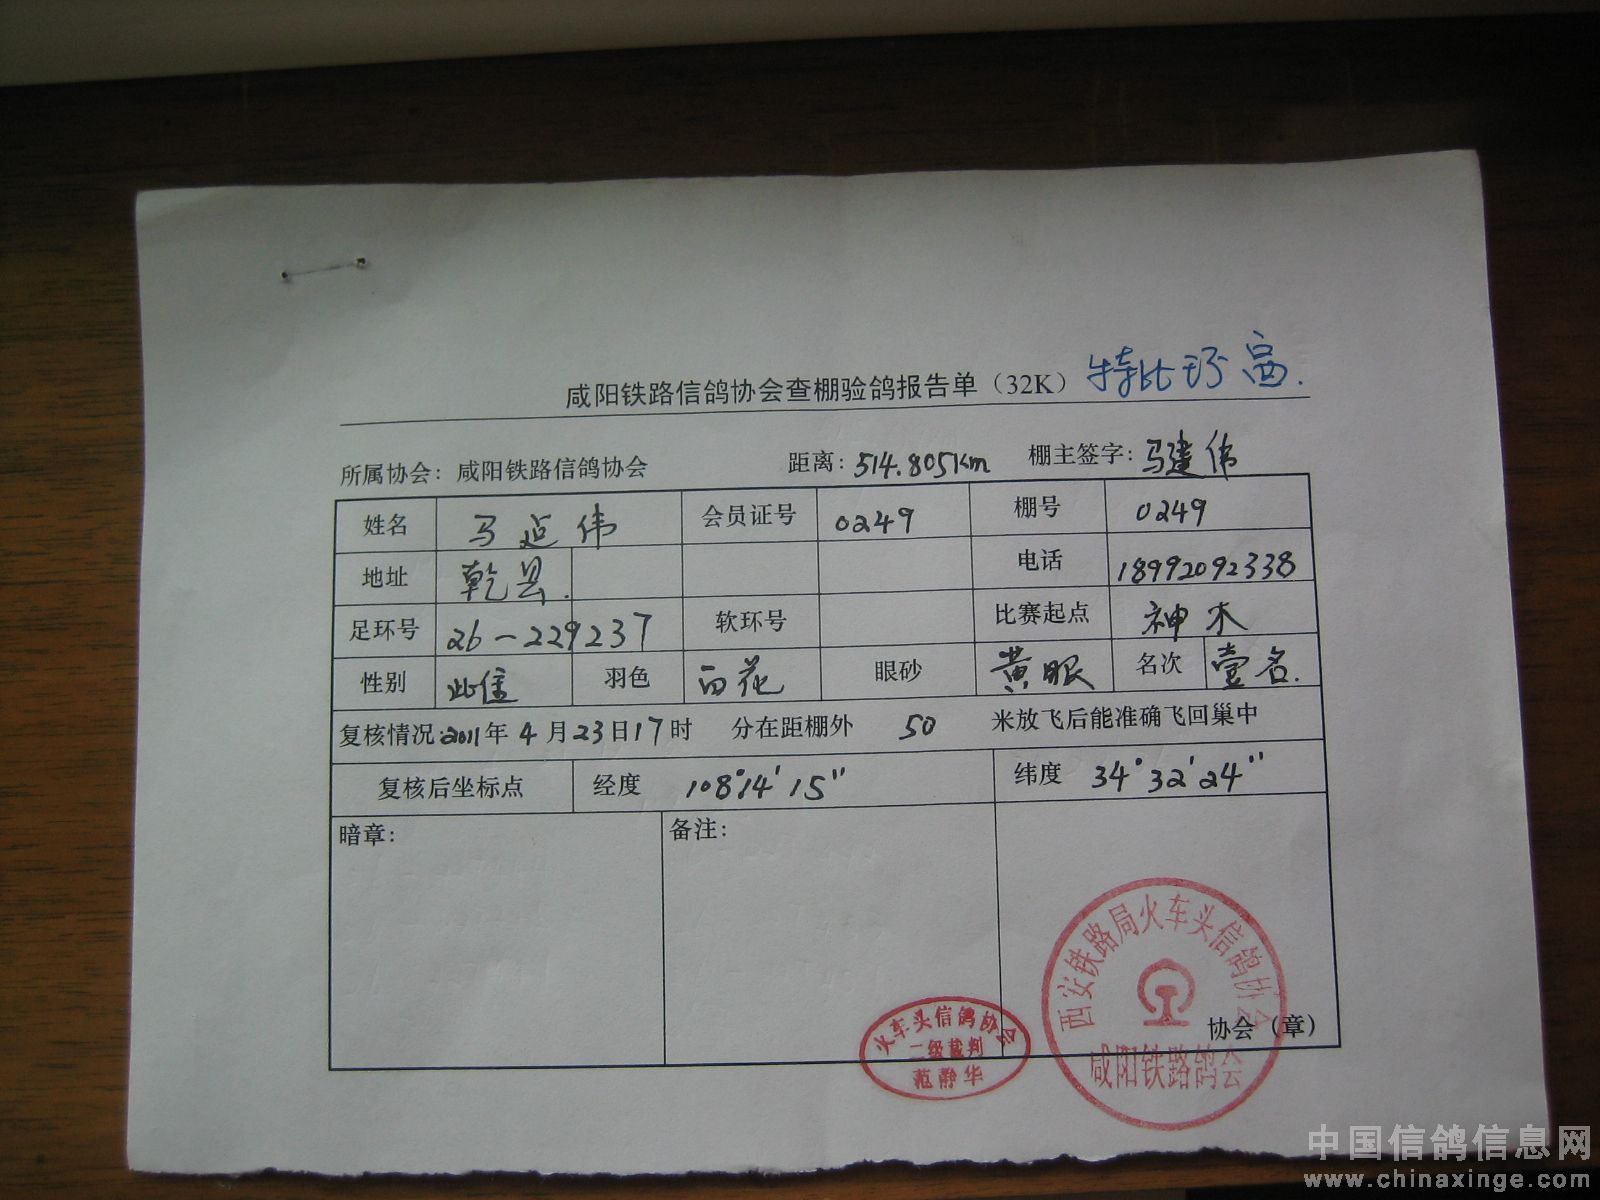 咸阳铁路信鸽协会查棚验鸽报告单（32K） 特比环高.
所属协会：咸阳铁路信鸽协会 距离：514.805Km 棚主签字：马建伟
姓名 马延伟 会员证号 0249 棚号 0249
地址 乾县. 电话 18992092338
足环号 26-229237 软环号 比赛起点 神木
性别 羽色 白花 眼砂 黄眼 名次 壹名.
复核情况：2011年4月23日17时 分在距棚外 50 米放飞后能准确飞回巢中
复核后坐标点 经度 108°14′15″ 纬度 34°32′24″
暗章： 备注：
西安铁路局火车头信鸽协会
咸阳铁路鸽会
协会（章）
火车头信鸽协会
二级裁判
范静华
中国信鸽信息网
www.chinaxinge.com